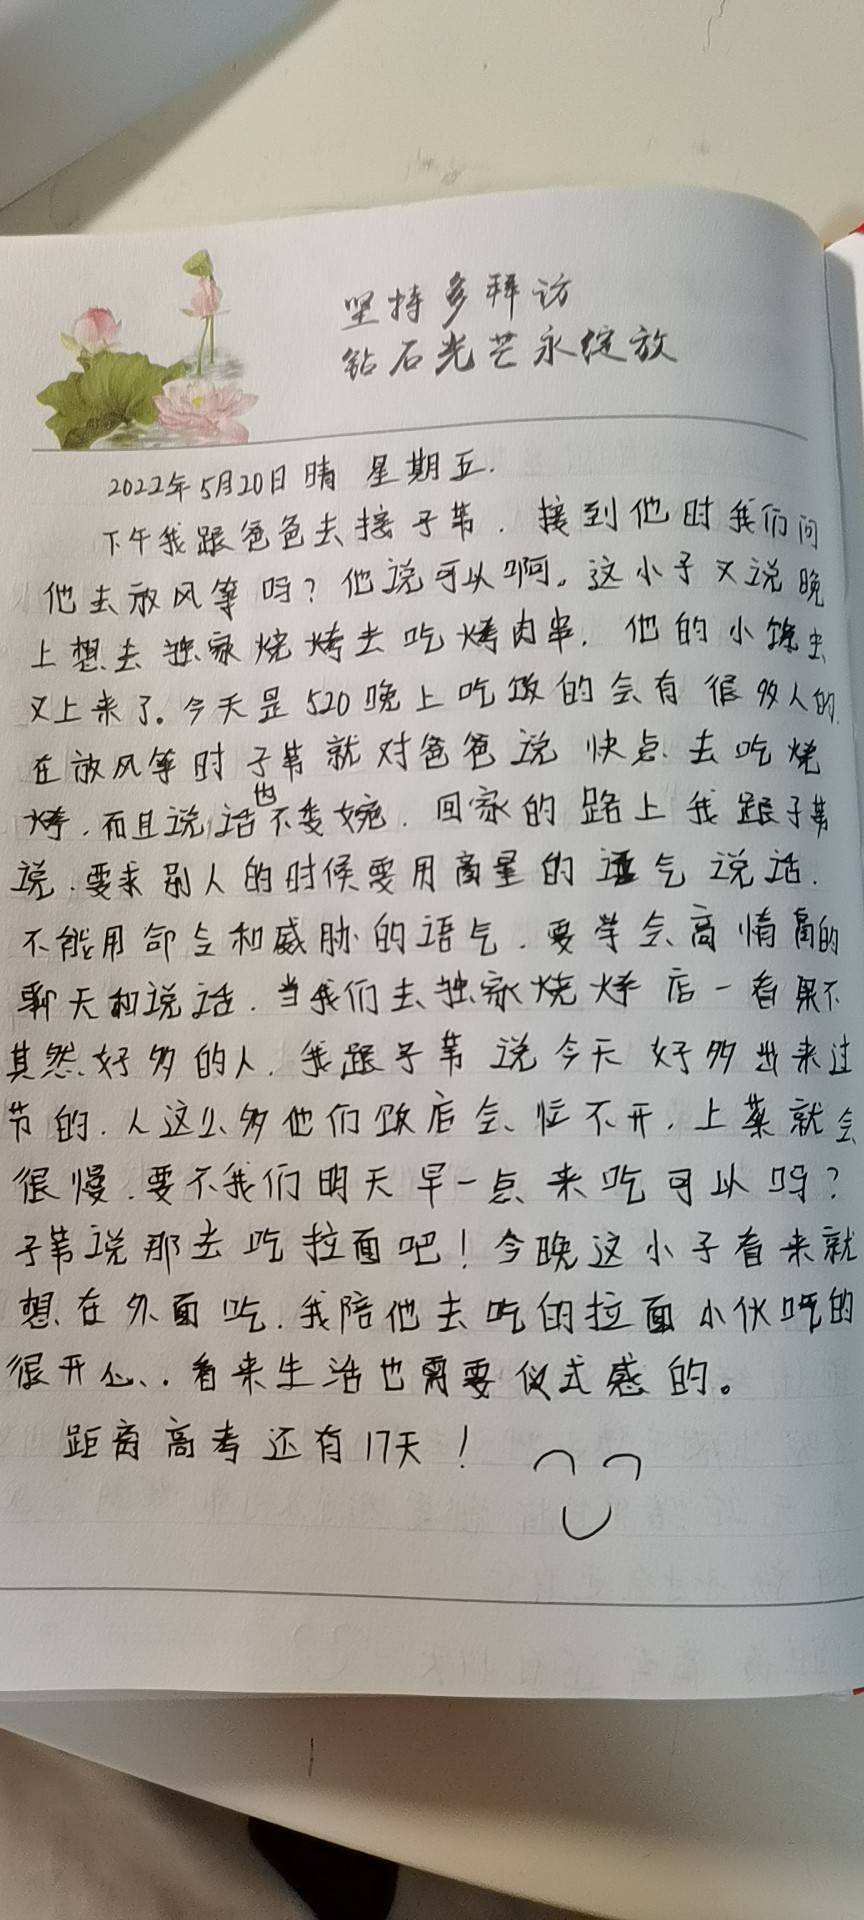 坚持多拜访
钻石光芒永绽放
2022年5月20日晴 星期五.
下午我跟爸爸去接子苇.接到他时我们问
他去放风筝吗?他说可以啊。这小子又说晚
上想去独家烧烤去吃烤肉串.他的小馋虫
又上来了。今天是520晚上吃饭的会有很多人的.
在放风筝时子苇就对爸爸说快点去吃烧
烤.而且说话也不委婉.回家的路上我跟子苇
说.要求别人的时候要用商量的语气说话.
不能用命令和威胁的语气.要学会高情商的
聊天和说话.当我们去独家烧烤店一看果不
其然好多的人.我跟子苇说今天好多出来过
节的.人这么多他们饭店会忙不开.上菜就会
很慢.要不我们明天早一点来吃可以吗?
子苇说那去吃拉面吧!今晚这小子看来就
想在外面吃.我陪他去吃的拉面小伙吃的
很开心..看来生活也需要仪式感的。
距离高考还有17天!